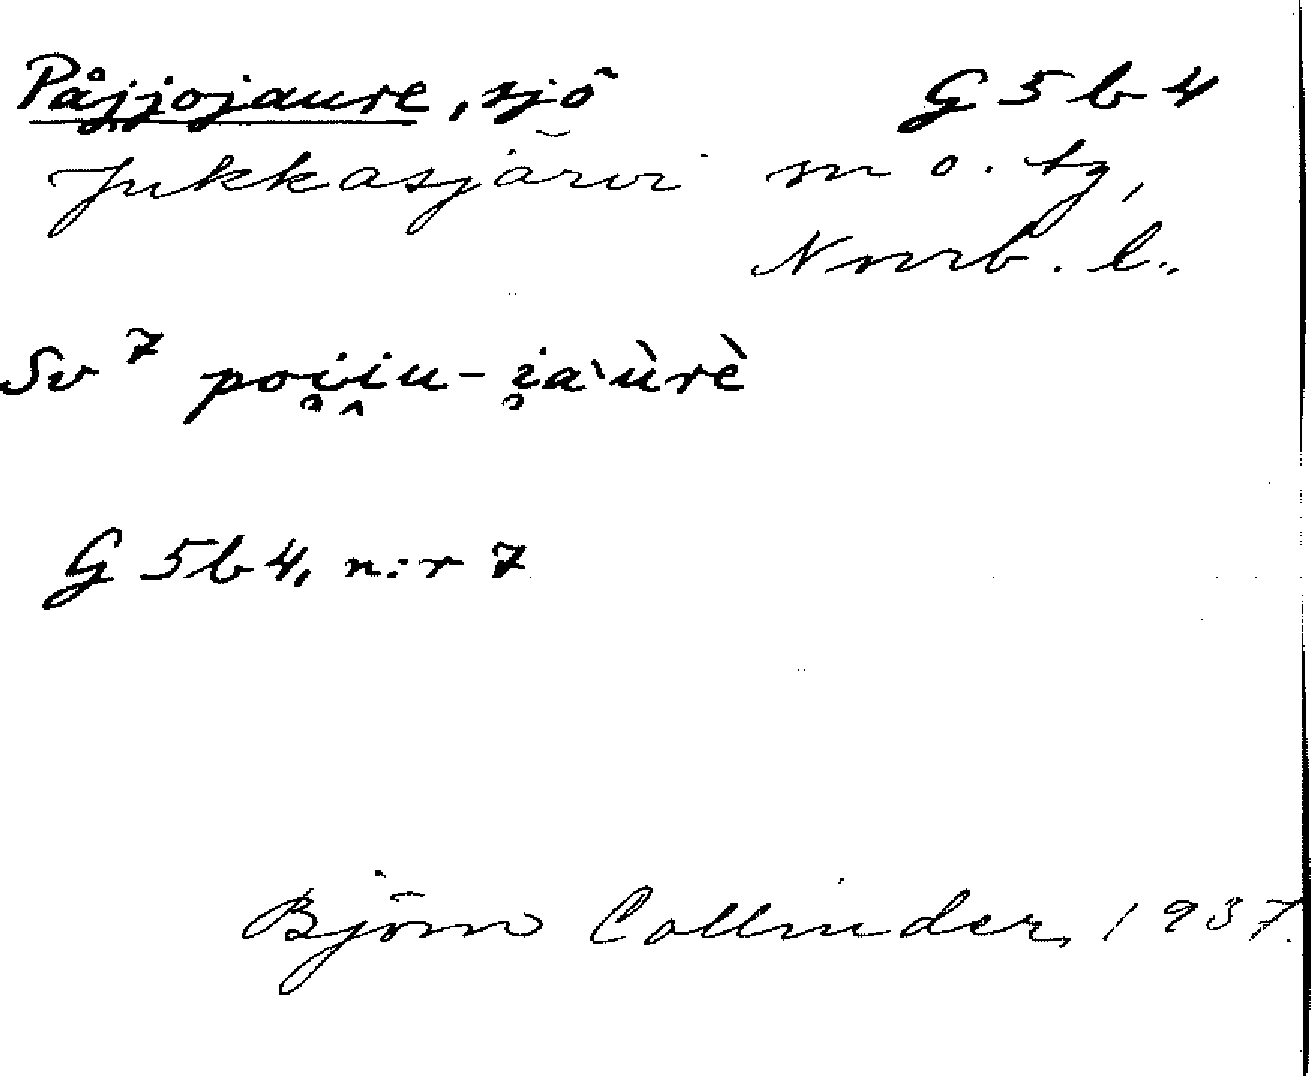 Påjjojaure, sjö G 5 b 4
Jukkasjärvi m o. tg,
Norrb. l.
Sv 7 poi̥i̭u-i̥a`ùrè
G 5b4, n:r 7
Björn Collinder, 1937.